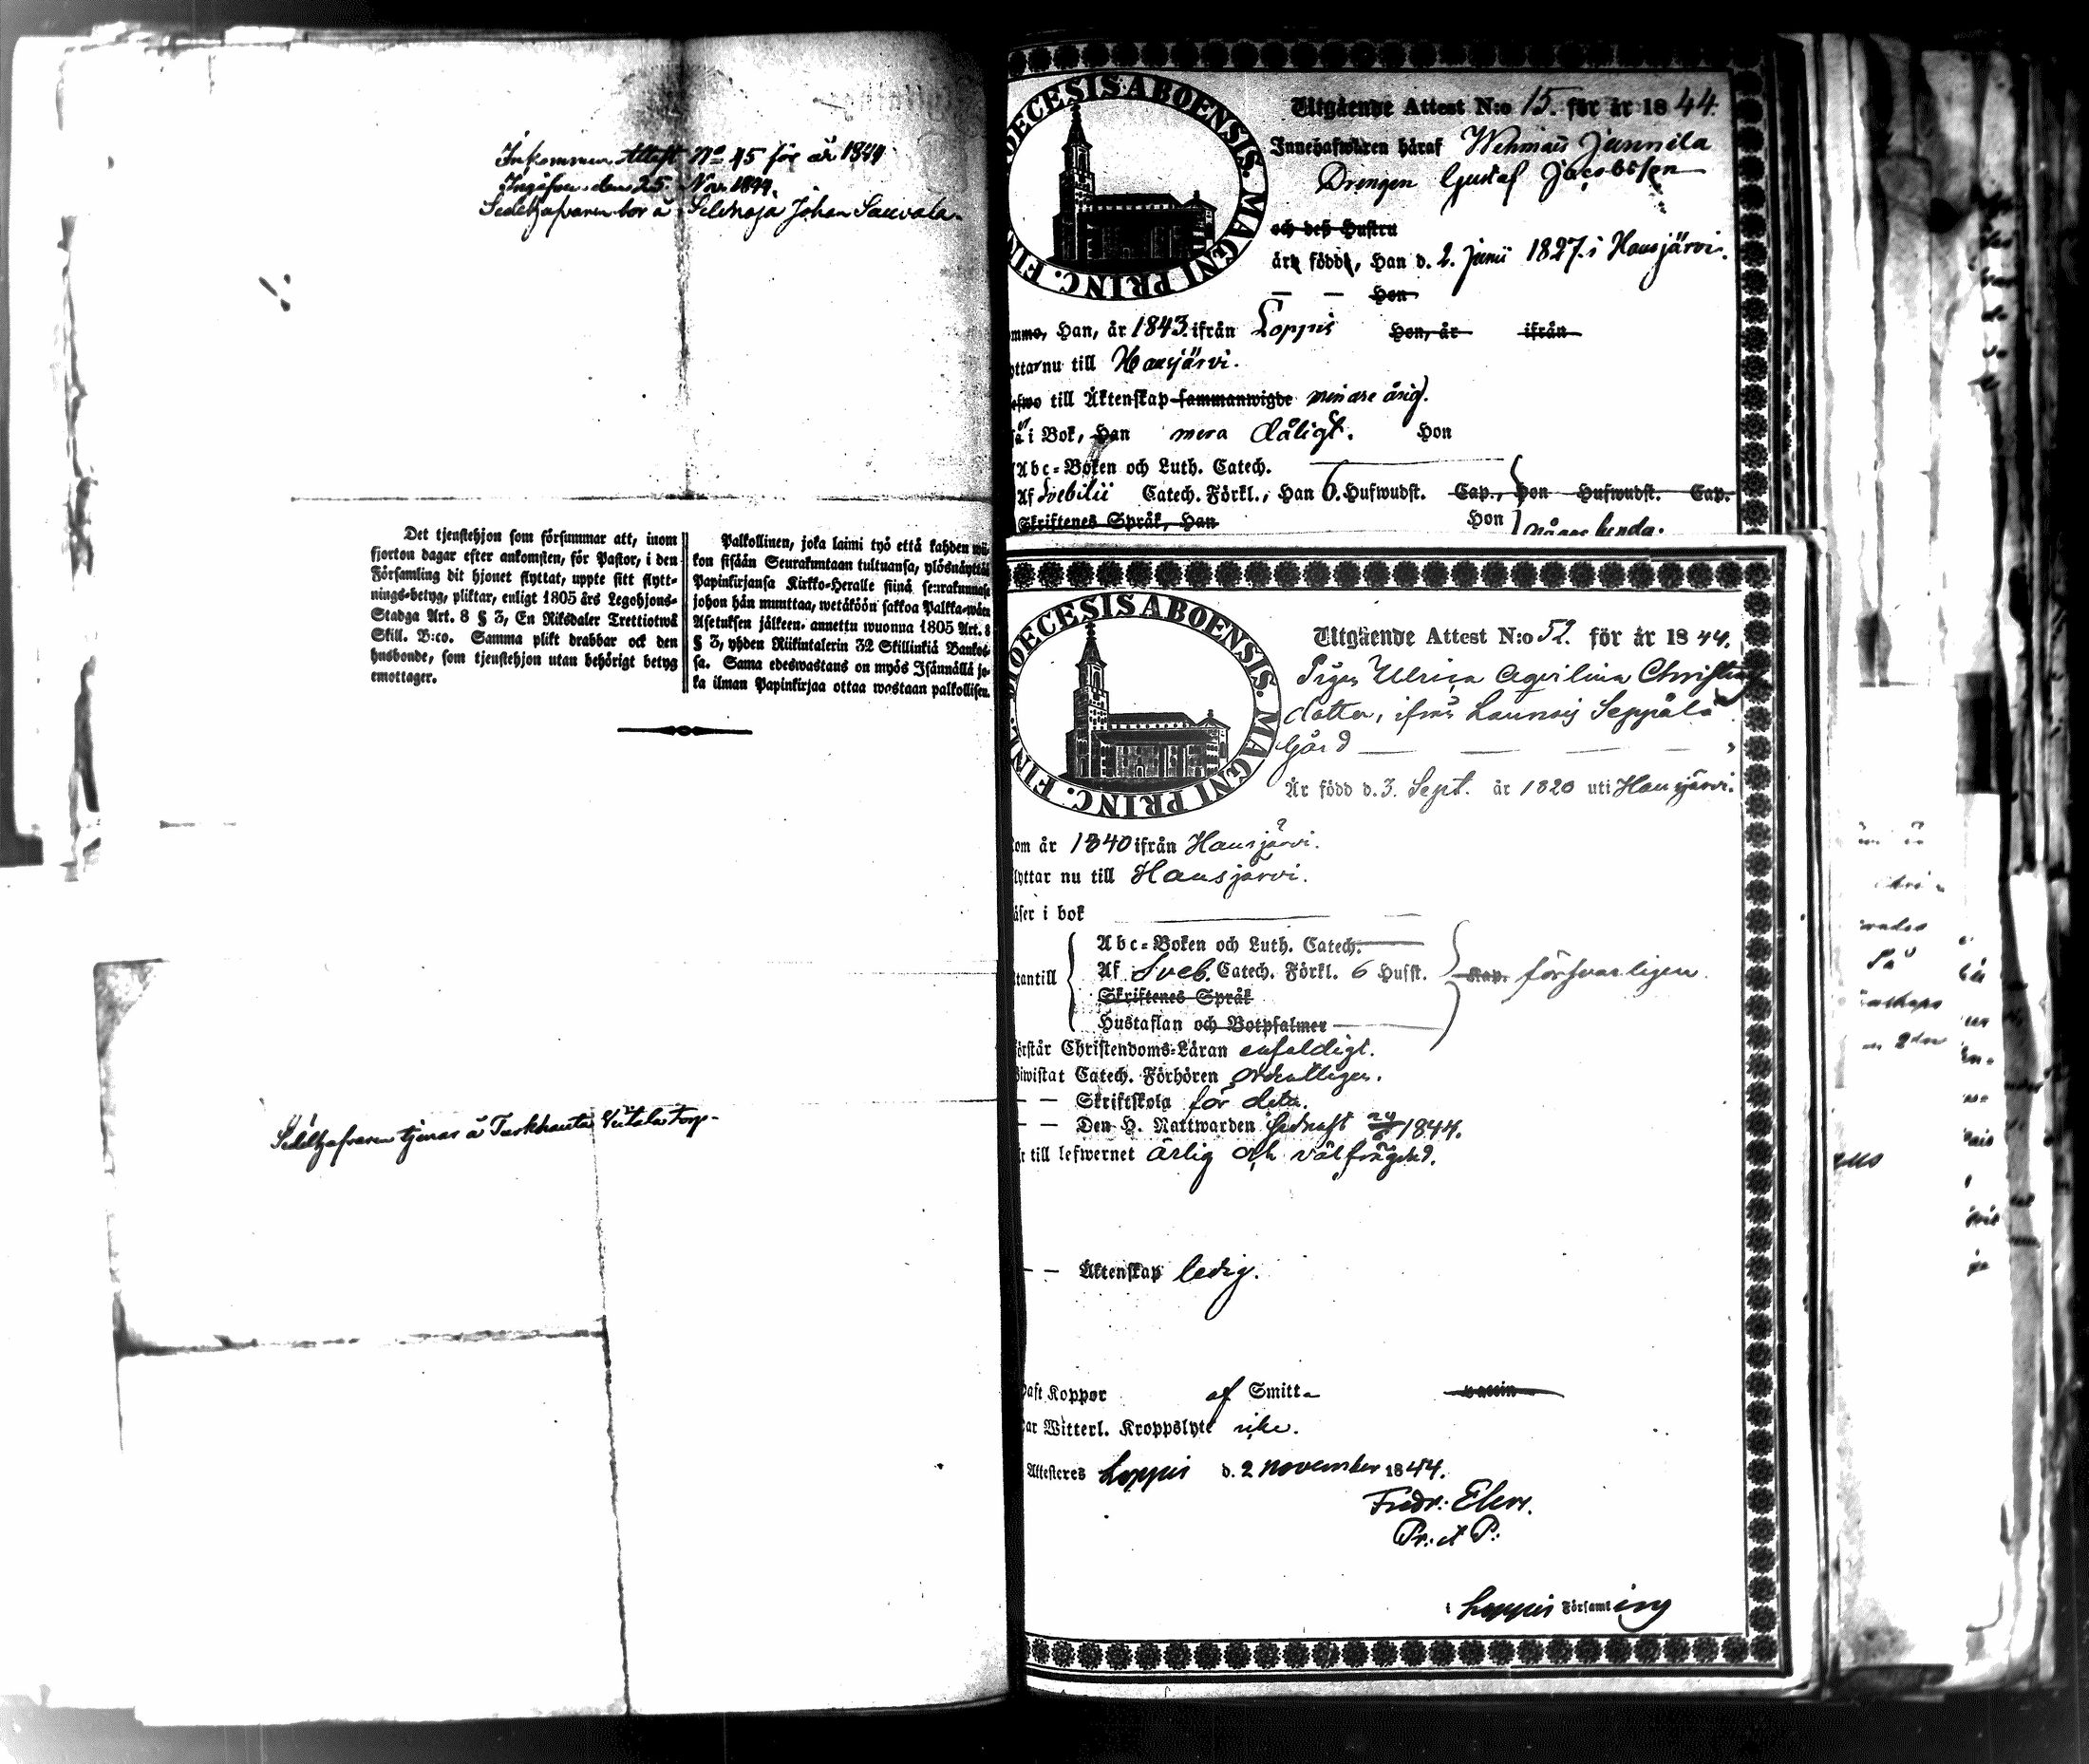 Inkommen Attest No 45 för år 1844
Ingifven den 25 Nov. 1844.
Sedelhafvaren bor å Selänoja Johan Sauvala.
Det tjenstehjon som försummar att, inom
fjorton dagar efter ankomsten, för Pastor, i den
Församling dit hjonet flyttat, uppte sitt flytt-
nings-betyg, pliktar, enligt 1805 års Legohjons-
Stadga Art. 8 § 3, En Riksdaler Trettiotwå
Skill. B:co. Samma plikt drabbar ock den
husbonde, som tjenstehjon utan behörigt betyg
emottager.
Palkollinen, joka laimi lyö että kahden wii-
kon sisään Seurakuntaan tultuansa, ylösnäyttää
Papinkirjansa Kirkko-Heralle siinä seurakunnassa
johon hän muuttaa, wetäköön sakkoa Palkka-wäen
Asetuksen jälkeen, annettu wuonna 1805 Art. 8
§ 3, yhden Riikintalerin 32 Skillinkiä Bankos-
sa. Sama edeswastaus on myös Isännällä jo-
ka ilman Papinkirjaa ottaa wastaan palkollisen.
Sedelhafvaren tjenar å Turkhauta Veitala torp
DIOECESIS ABOENSIS. MAGNI PRINC. FIN
Utgående Attest N:o 15. för år 1844.
Innehafwaren häraf Wehmais Junnila
Drengen Gustaf Jacobsson
och deß Hustru
äro födde, Han d. 2. Junii 1827. i Hausjärvi.
— — Hon
mmo, Han, år 1843. ifrån Loppis Hon, år ifrån
yttar nu till Hausjärvi.
efwo till Äktenskap sammanwigde mindre årig.
i Bok, Han mera dåligt. Hon
Abc-Boken och Luth. Catech.
Af Svebilii Catech. Förkl., Han 6. Hufwudst. Cap., Hon Hufwudst. Cap.
Skriftenes Språk, Han Hon någorlunda.
DIOECESIS ABOENSIS. MAGNI PRINC. FINL.
Utgående Attest N:o 52. för år 1844.
Pigan Ulrica Aqvilina Christians
dotter, ifrån Launois Seppälä
Gård — — — —
Är född d. 3. Sept. år 1820 uti Hausjärvi.
kom år 1840 ifrån Hausjärvi.
lyttar nu till Hausjärvi.
äser i bok
tantill
Abc-Boken och Luth. Catech.
Af Sveb. Catech. Förkl. 6 Hufst. Kap. försvarligen.
Skriftenes Språk
Hustaflan och Botpsalmer
örstår Christendoms-Läran enfaldigt.
iwistat Catech. Förhören ordentligen.
— — Skriftskola för detta.
— — Den H. Nattwarden sednast 1844.
r till lefwernet ärlig och välfrägdad.
— — Äktenskap ledig.
aft Koppor af Smitta vaccin
ar Witterl. Kroppslyte icke.
Attesteres Loppis d. 2 november 1844.
Fredr: Elers.
Pr: et P:
i Loppis Församling